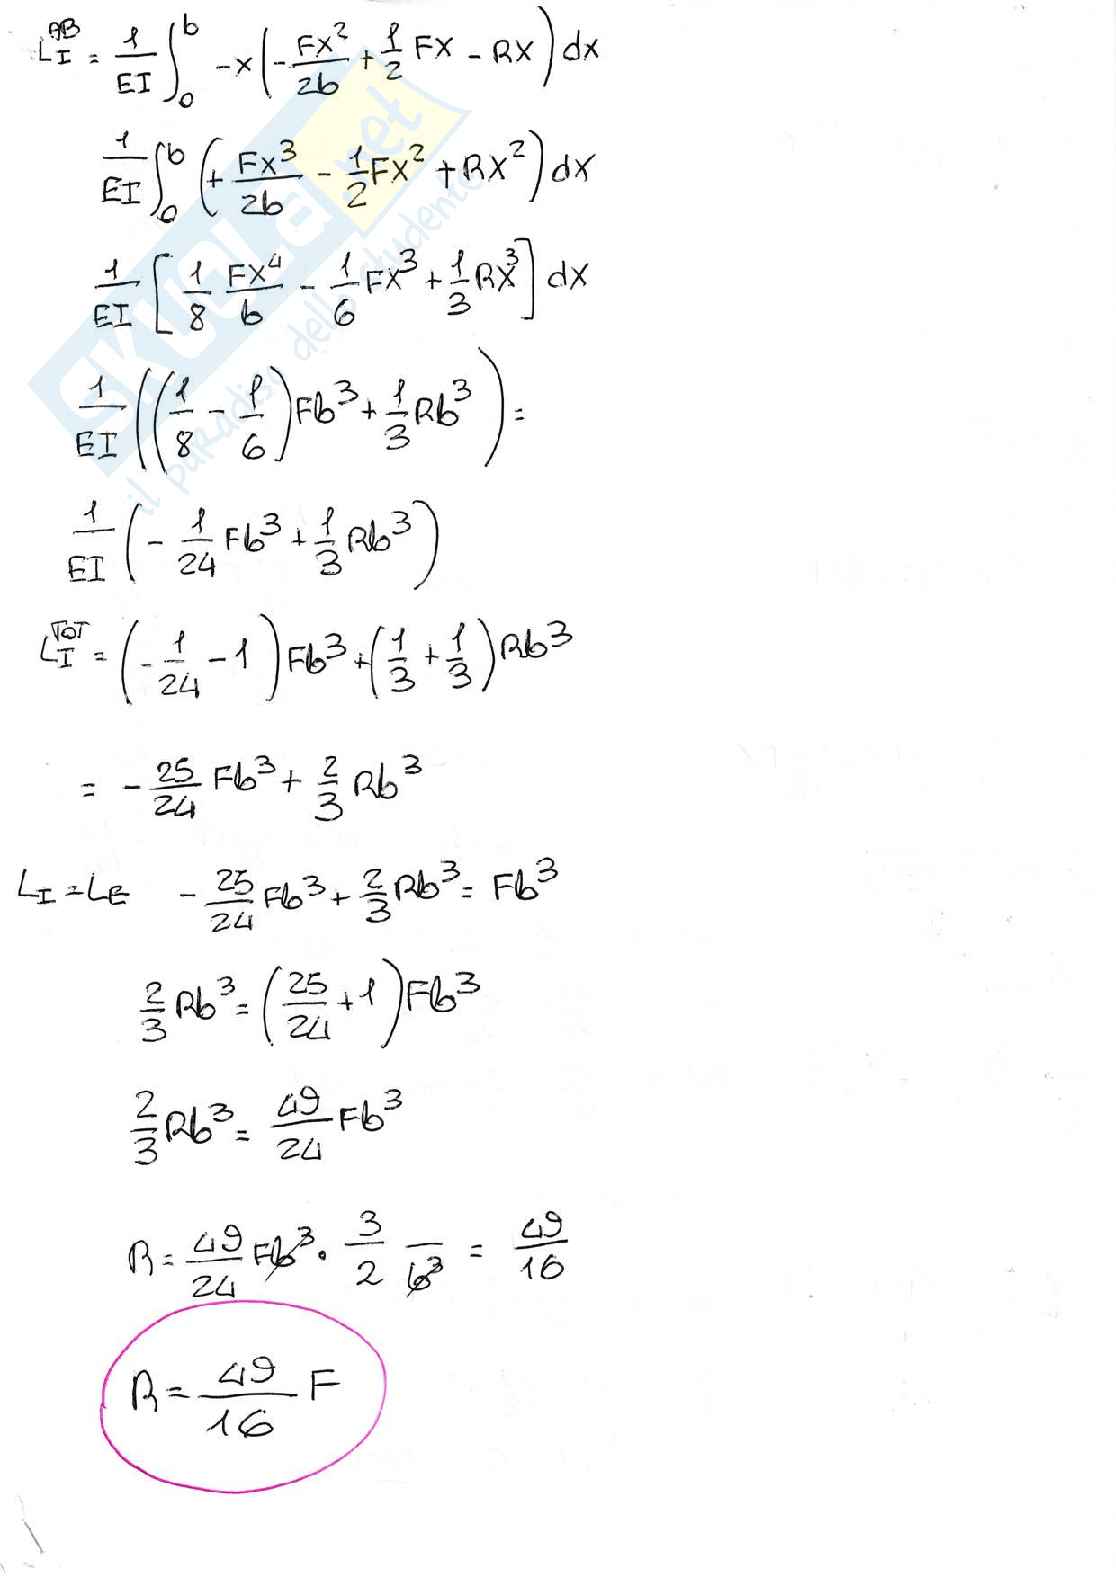 L_I^AB = 1/EI ∫_0^b -x(-Fx²/2b + 1/2 Fx - Rx) dx
1/EI ∫_0^b (+ Fx³/2b - 1/2 Fx² + Rx²) dx
1/EI [1/8 Fx⁴/b - 1/6 Fx³ + 1/3 Rx³] dx
1/EI ((1/8 - 1/6) Fb³ + 1/3 Rb³) =
1/EI (- 1/24 Fb³ + 1/3 Rb³)
L_I^TOT = (- 1/24 - 1) Fb³ + (1/3 + 1/3) Rb³
= - 25/24 Fb³ + 2/3 Rb³
L_I = L_E - 25/24 Fb³ + 2/3 Rb³ = Fb³
2/3 Rb³ = (25/24 + 1) Fb³
2/3 Rb³ = 49/24 Fb³
R = 49/24 Fb³ · 3/2 /b³ = 49/16
R = 49/16 F
SKUOLA.net
il paradiso dello studente